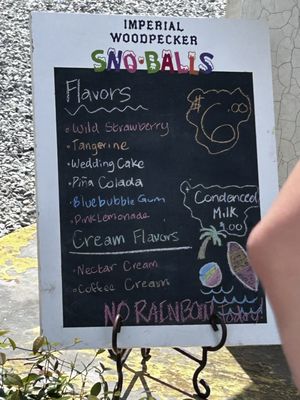 IMPERIAL
WOODPECKER
SNO·BALLS
Flavors
$6.00
• Wild Strawberry
• Tangerine
• Wedding Cake
• Piña Colada
• Blue bubble Gum
• Pink Lemonade
Condensed
Milk
1.00
Cream Flavors
• Nectar Cream
• Coffee Cream
NO RAINBOW today